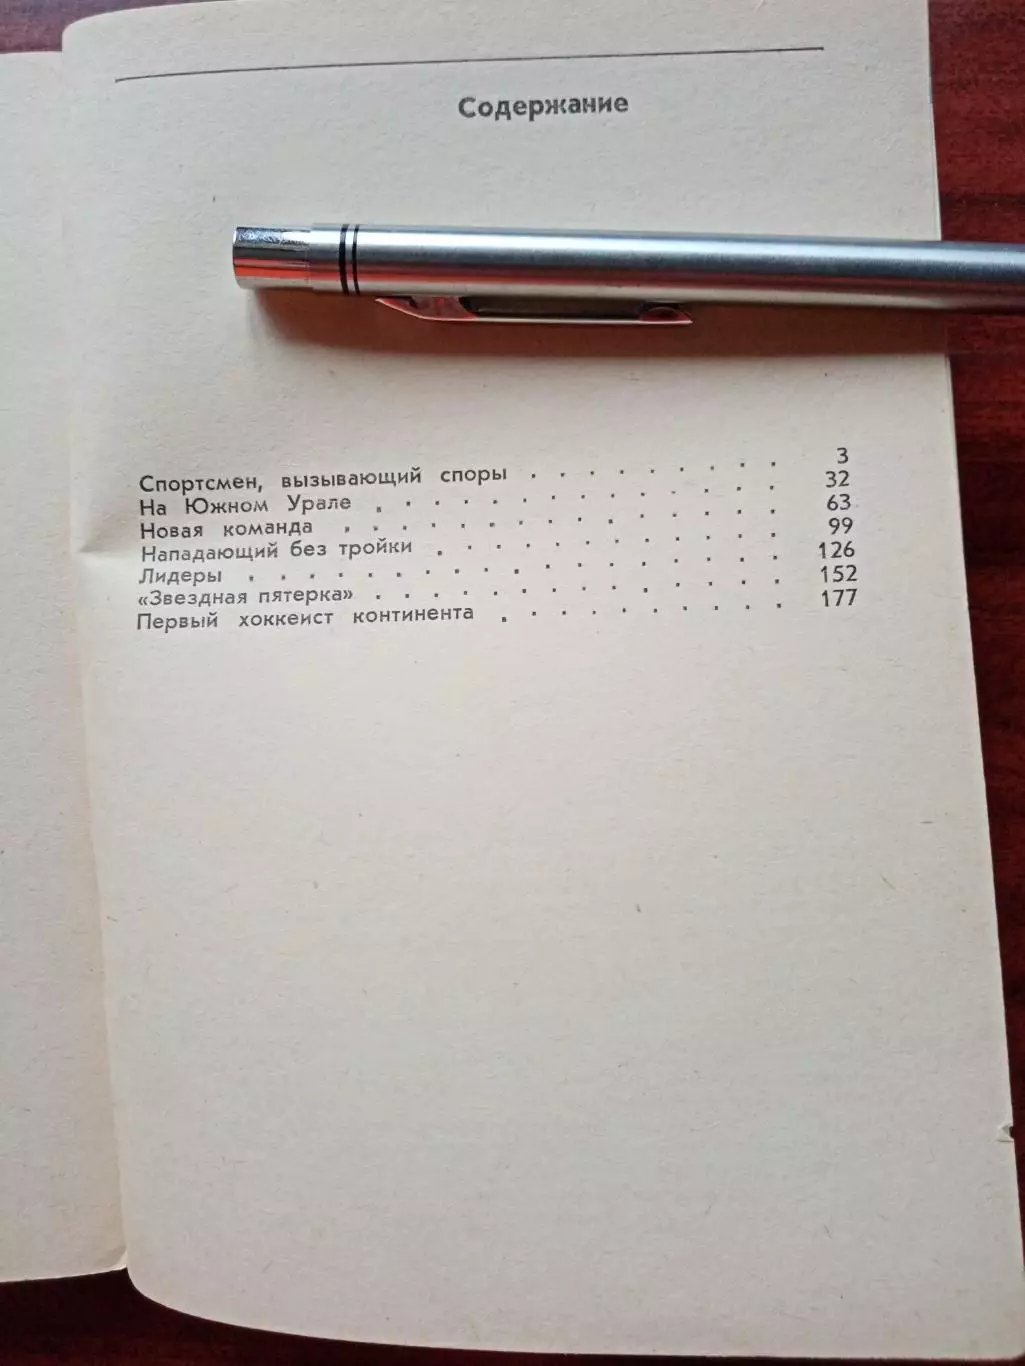 Содержание
Спортсмен, вызывающий споры . . . . . . . . . 3
На Южном Урале . . . . . . . . . . . . . . 32
Новая команда . . . . . . . . . . . . . . . 63
Нападающий без тройки . . . . . . . . . . . . 99
Лидеры . . . . . . . . . . . . . . . . . . . 126
«Звездная пятерка» . . . . . . . . . . . . . . 152
Первый хоккеист континента . . . . . . . . . . 177